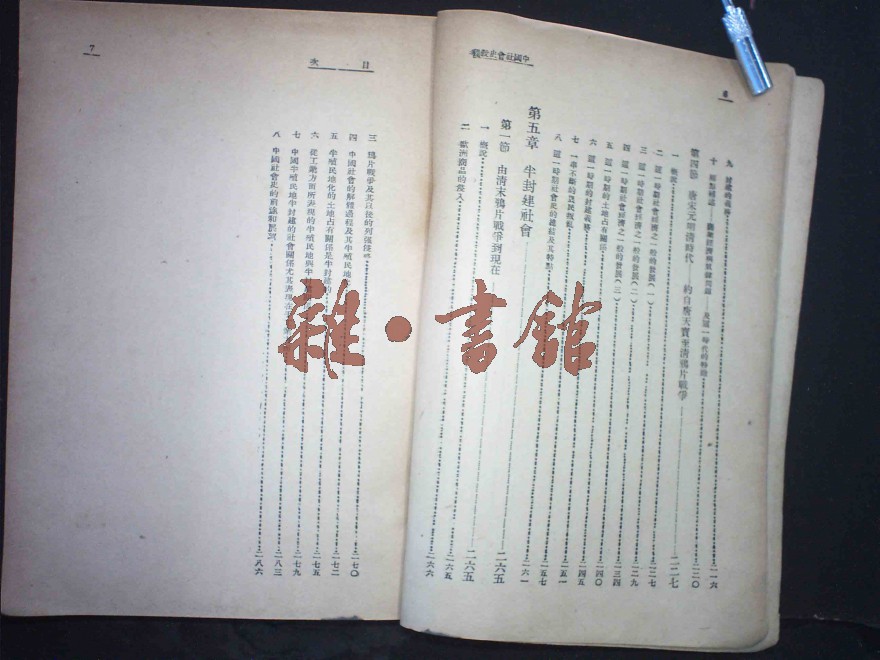 中國社會史
九
二一六
十
二二〇
第四節 唐宋元明清時代——約自唐天寶至清鴉片戰爭——
二二七
一 概說
二二七
二 這一時期社會經濟之一般的發展(一)
二二九
三 這一時期社會經濟之一般的發展(二)
二三四
四 這一時期社會經濟之一般的發展(三)
二四〇
五 這一時期的土地占有關係
二四五
六 這一時期的封建義務
二五一
七 一串不斷的農民叛亂
二五七
八 這一時期社會史的總結及其特點
二六一
第五章 半封建社會
二六五
第一節 由清末鴉片戰爭到現在
二六五
一 概說
二六五
二 歐洲商品的侵入
二六六
目次
7
三 鴉片戰爭及其以後的列強侵略
四 中國社會的解體過程及其半殖民地
二七〇
五 半殖民地化的土地占有關係是半封建的
二七二
六 從工廠方面所表現的半殖民地與半
二七五
七 中國半殖民地半封建的社會關係尤其表現在
二七九
八 中國社會史的前途和
二八三
二八六
雜·書館